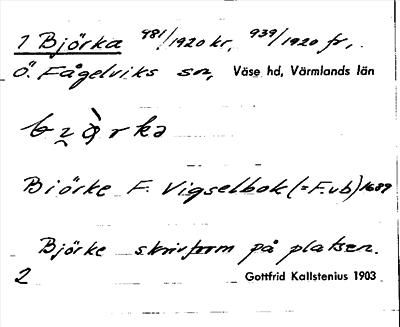 1 Björka 481/1920 kr, 939/1920 fr,
Ö. Fågelviks sn, Väse hd, Värmlands län
Biörke F. Vigselbok (=F.vb) 1689
Björke skrivform på platsen.
2 Gottfrid Kallstenius 1903